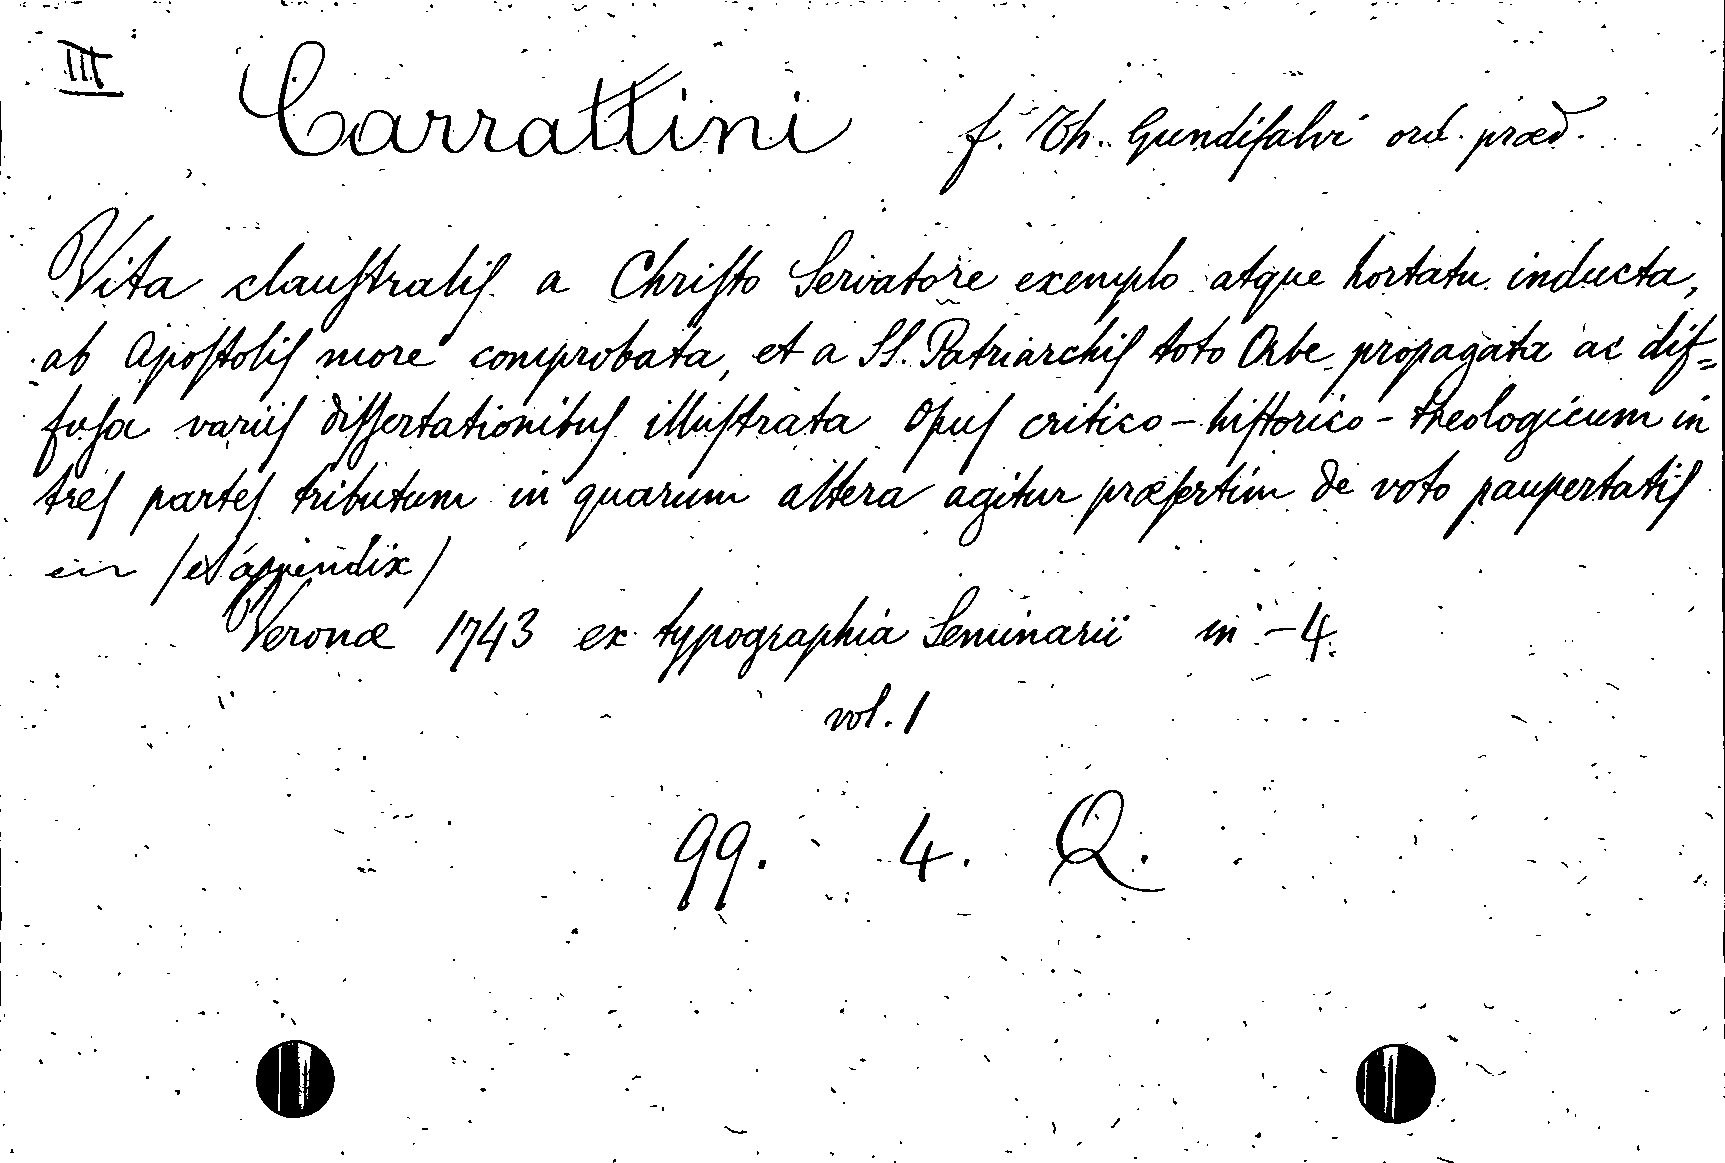 III
Carrattini f. Th. Gundisalvi ord. præd.
Vita claustralis a Christo Servatore exemplo atque hortatu inducta,
ab Apostolis more comprobata, et a SS. Patriarchis toto Orbe propagata ac dif-
fusa variis dissertationibus illustrata Opus critico-historico-theologicum in
tres partes tributum in quarum altera agitur præsertim de voto paupertatis
/et appendix/
Veronæ 1743 ex typographia Seminarii in-4.
vol. 1
99. 4. Q.